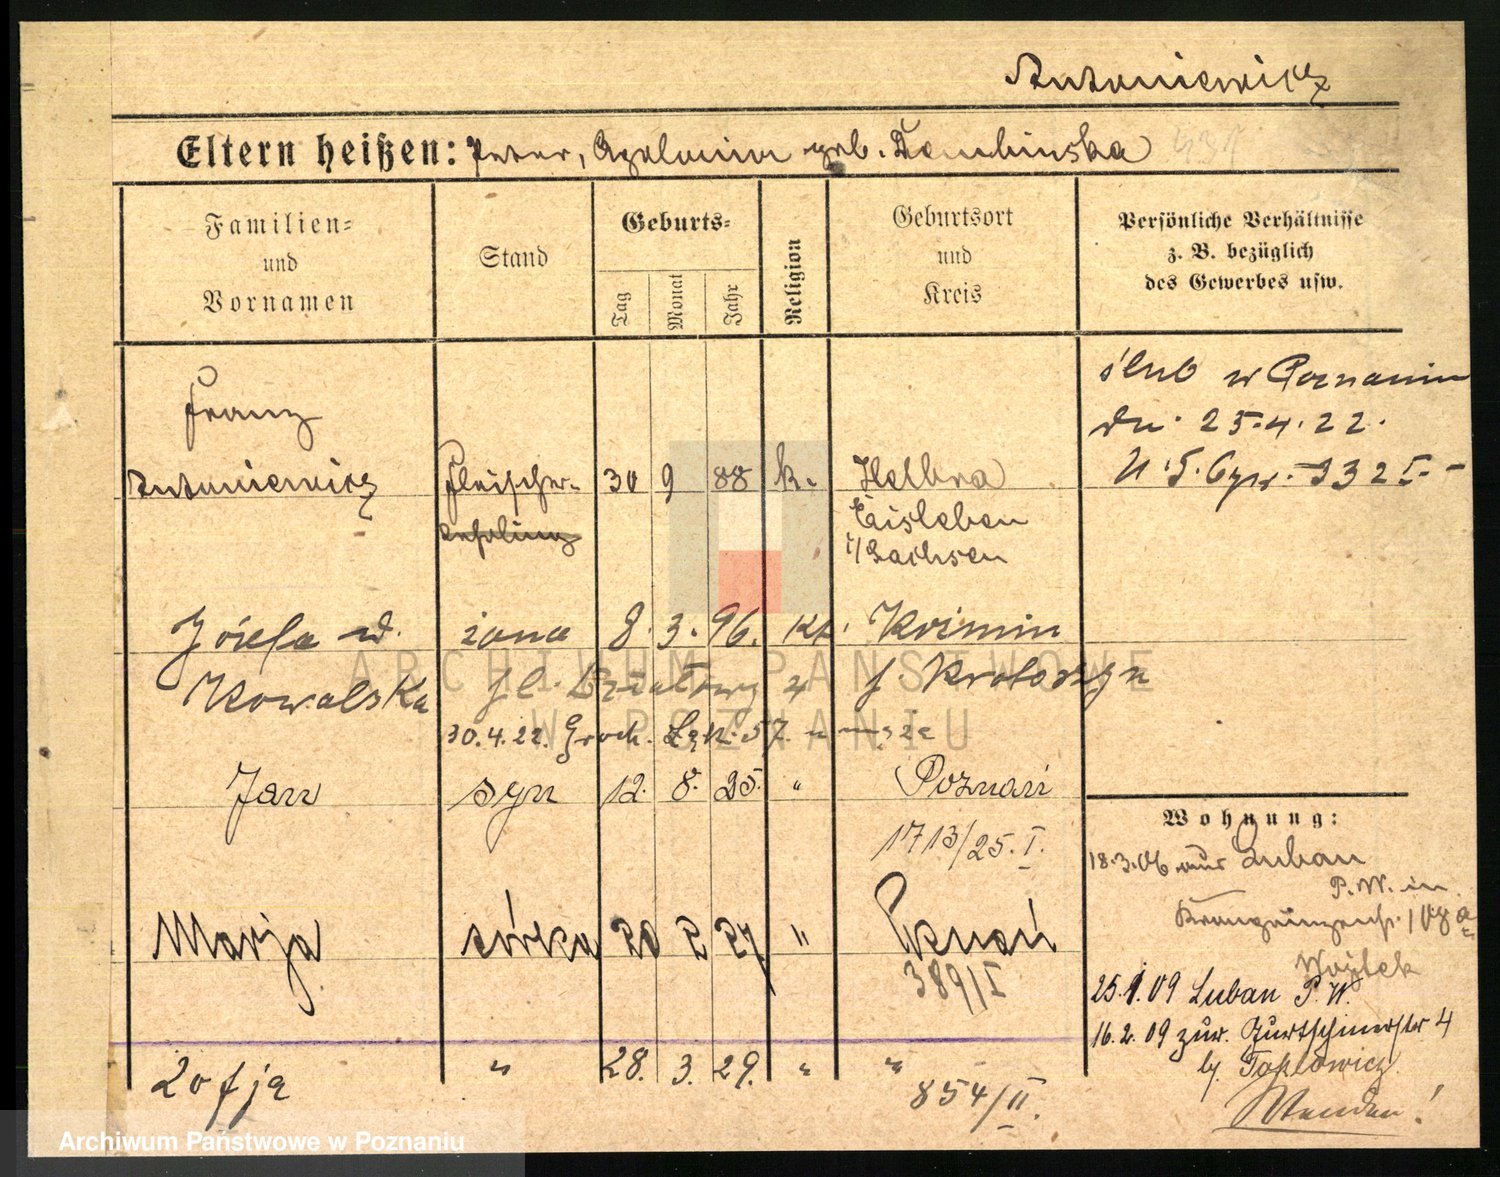 Antoniewicz
Eltern heißen: Peter, Apolonia geb. Dembinska
Familien=
und
Vornamen
Stand
Geburts=
Tag
Monat
Jahr
Religion
Geburtsort
und
Kreis
Persönliche Verhältnisse
z. B. bezüglich
des Gewerbes usw.
ślub w Poznaniu
dn. 25.4.22.
U.S. 332 I.
Franz
Antoniewicz Fleischer- 30 9 88 k. Helbra
Eisleben
i/Sachsen
Józefa ż. żona 8. 3. 96. kt. Krimin
Kowalska p. Krotoszyn
30.4.22. Groch. Łąk. 57.
Jan syn 12. 8. 25. " Poznań
1713/25. I.
Marja córka 20 2 27 " Poznań
389/I
Zofja " 28. 3. 29. " "
854/II.
Wohnung:
18.3.06 aus Luban
P.W. in
Kronprinzenstr. 108a
Wojtek
25.1.09 Luban P.W.
16.2.09 zur. 4
b/ Tafelowicz
Wenden!
ARCHIWUM PAŃSTWOWE
W POZNANIU
Archiwum Państwowe w Poznaniu